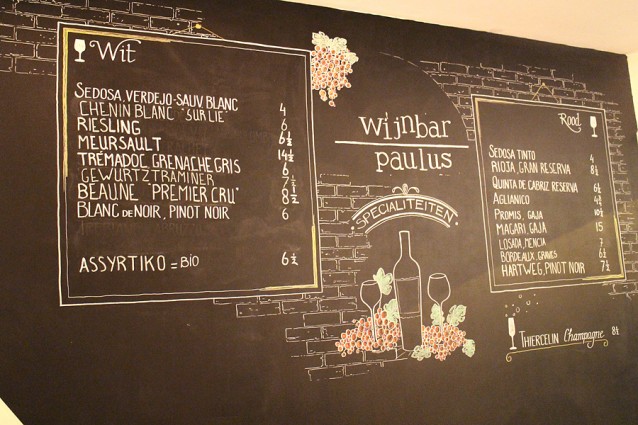 Wit
SEDOSA, VERDEJO-SAUV BLANC 4
CHENIN BLANC "SUR LIE" 6
RIESLING 6½
MEURSAULT 14½
TRÉMADOC, GRENACHE GRIS 6
GEWURTZTRAMINER 7½
BEAUNE "PREMIER CRU" 8½
BLANC DE NOIR, PINOT NOIR 6
ASSYRTIKO = BIO 6½
wijnbar
paulus
SPECIALITEITEN
Rood
SEDOSA TINTO 4
RIOJA, GRAN RESERVA 8½
QUINTA DE CABRIZ RESERVA 6½
AGLIANICO 4½
PROMIS, GAJA 10½
MAGARI, GAJA 15
LOSADA, MENCIA 7
BORDEAUX, GRAVES 6½
HARTWEG, PINOT NOIR 7½
THIERCELIN Champagne 8½